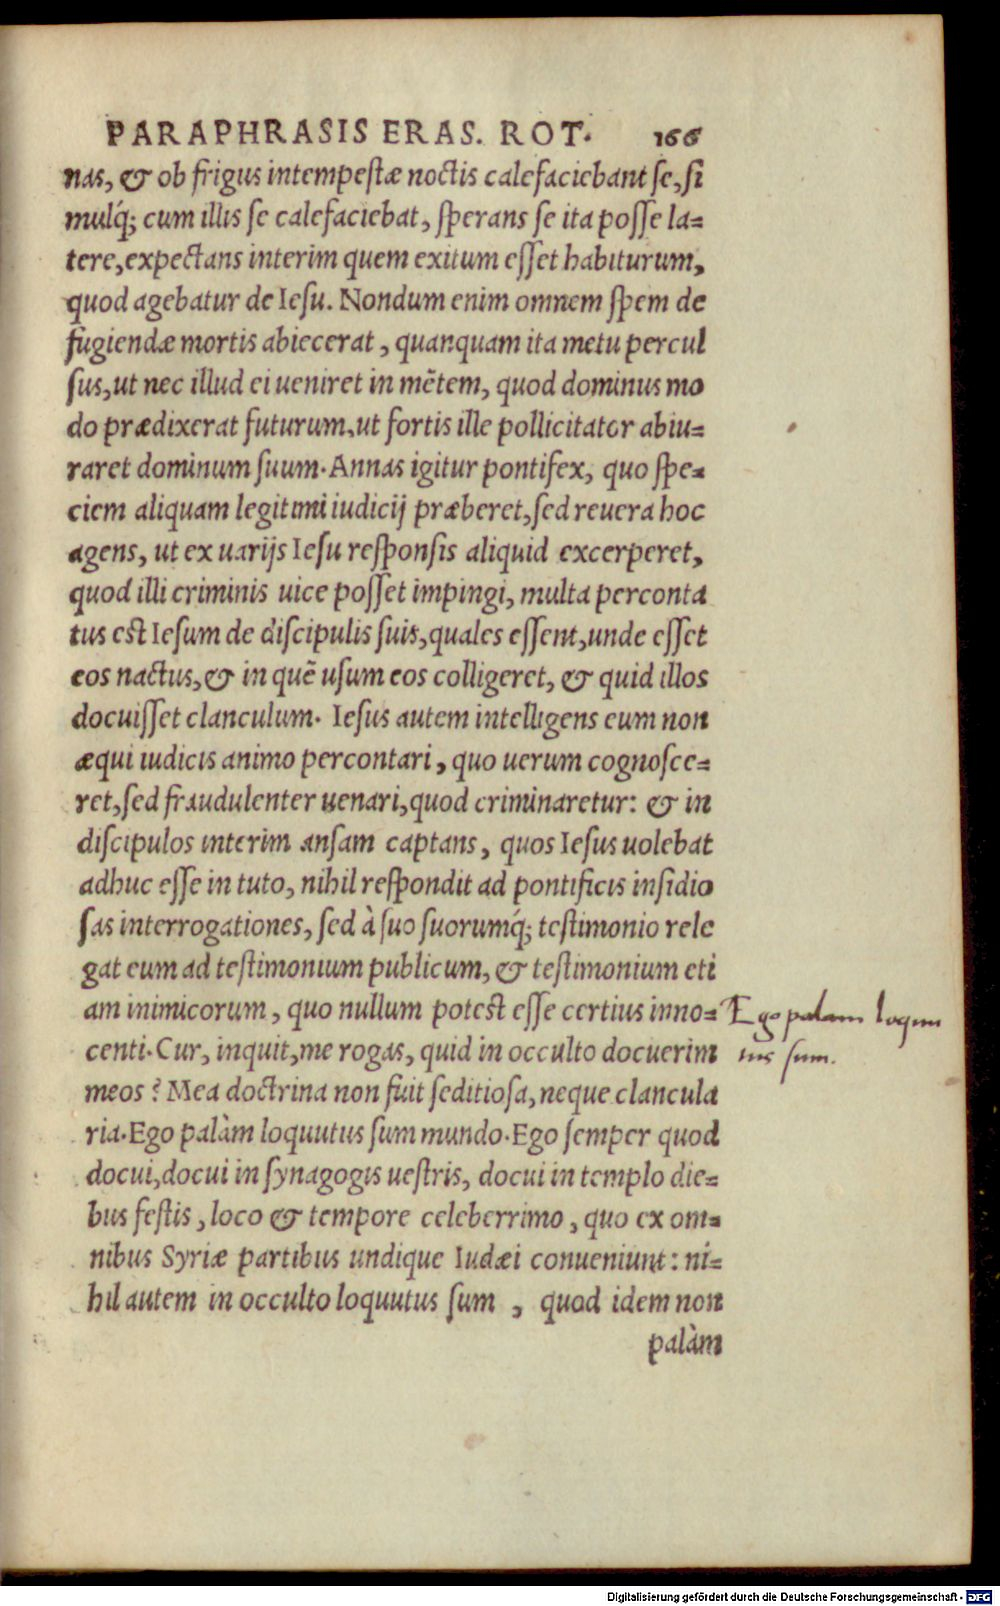 PARAPHRASIS ERAS. ROT. 166
nas, & ob frigus intempestæ noctis calefaciebant se, si
mulq́; cum illis se calefaciebat, sperans se ita posse la=
tere, expectans interim quem exitum esset habiturum,
quod agebatur de Iesu. Nondum enim omnem spem de
fugiendæ mortis abiecerat, quanquam ita metu percul
sus, ut nec illud ei ueniret in mẽtem, quod dominus mo
do prædixerat futurum, ut fortis ille pollicitator abiu=
raret dominum suum. Annas igitur pontifex, quo spe=
ciem aliquam legitimi iudicij præberet, sed reuera hoc
agens, ut ex uarijs Iesu responsis aliquid excerperet,
quod illi criminis uice posset impingi, multa perconta
tus est Iesum de discipulis suis, quales essent, unde esset
eos nactus, & in quẽ usum eos colligeret, & quid illos
docuisset clanculum. Iesus autem intelligens eum non
æqui iudicis animo percontari, quo uerum cognosce=
ret, sed fraudulenter uenari, quod criminaretur: & in
discipulos interim ansam captans, quos Iesus uolebat
adhuc esse in tuto, nihil respondit ad pontificis insidio
sas interrogationes, sed à suo suorumq́; testimonio rele
gat eum ad testimonium publicum, & testimonium eti
am inimicorum, quo nullum potest esse certius inno=
centi. Cur, inquit, me rogas, quid in occulto docuerim
meos? Mea doctrina non fuit seditiosa, neque clancula
ria. Ego palàm loquutus sum mundo. Ego semper quod
docui, docui in synagogis uestris, docui in templo die=
bus festis, loco & tempore celeberrimo, quo ex om=
nibus Syriæ partibus undique Iudæi conueniunt: ni=
hil autem in occulto loquutus sum, quod idem non
palàm
Ego palam loquu
tus sum.
Digitalisierung gefördert durch die Deutsche Forschungsgemeinschaft - DFG